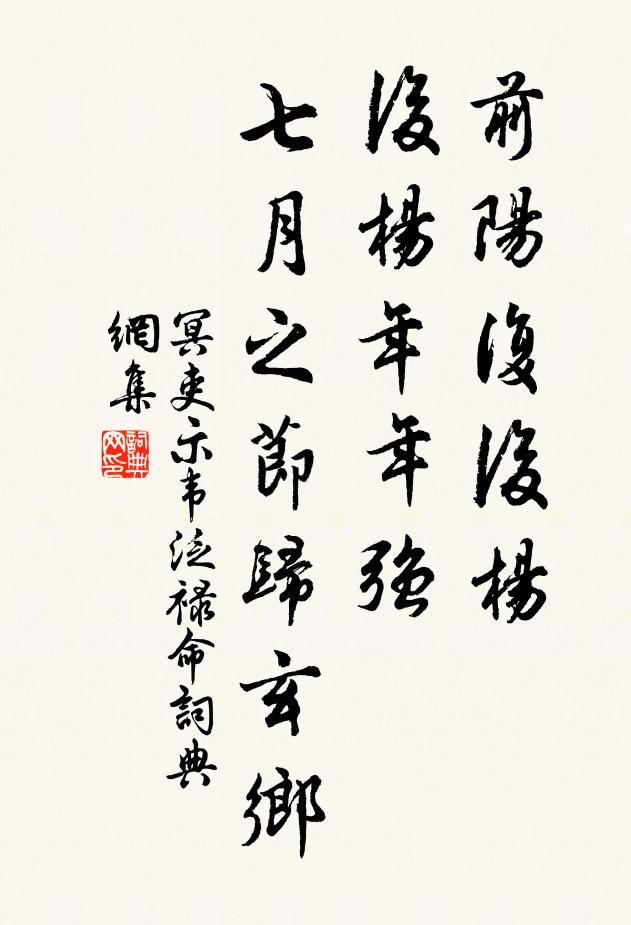 前陽復後楊
後楊年年強
七月之節歸玄鄉
冥吏示韦泛禄命詞典
網集
詞典网印